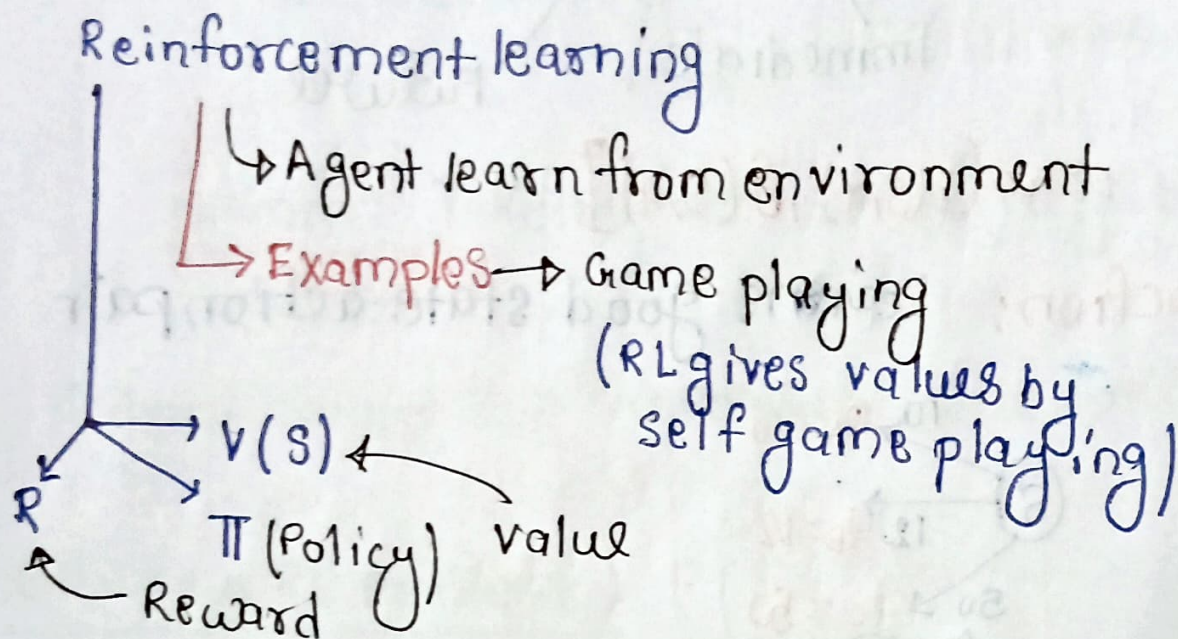 Reinforcement learning
↳ Agent learn from environment
→ Examples → Game playing
(RL gives values by
self game playing)
V(S)
R
π (Policy) value
Reward